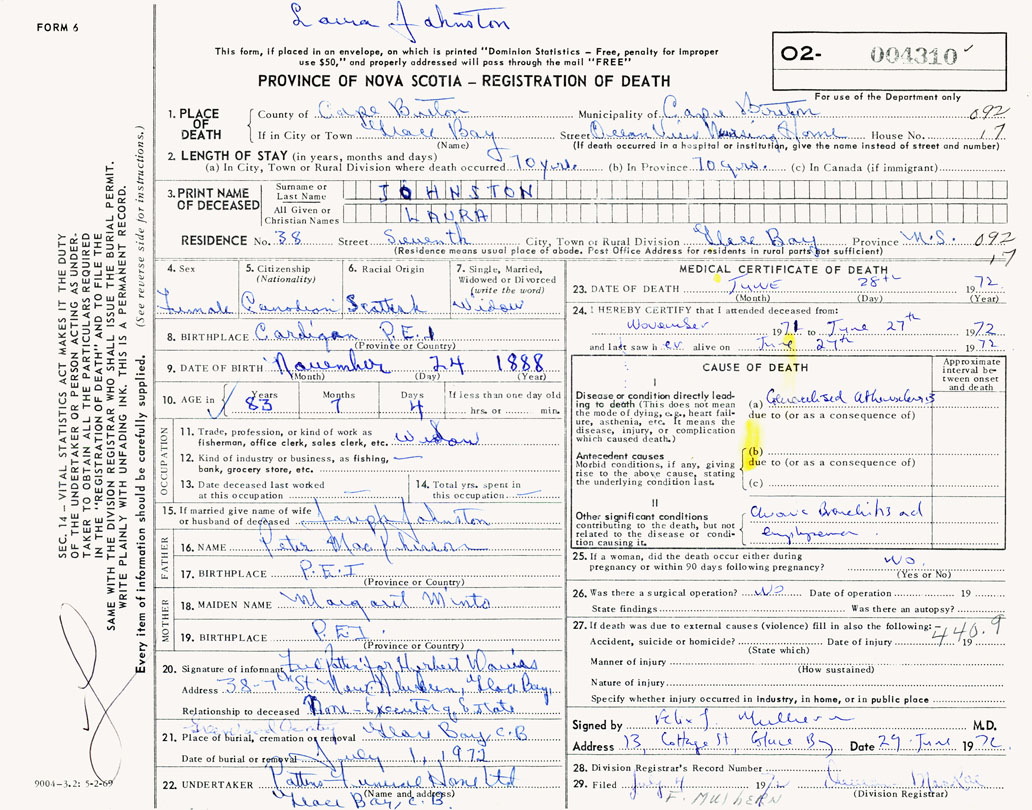 Laura Johnston
FORM 6
This form, if placed in an envelope, on which is printed "Dominion Statistics – Free, penalty for improper
use $50," and properly addressed will pass through the mail "FREE"
PROVINCE OF NOVA SCOTIA – REGISTRATION OF DEATH
02- 004310
For use of the Department only
1. PLACE OF DEATH
County of Cape Breton Municipality of Cape Breton 092
If in City or Town Glace Bay Street Ocean View Nursing Home House No. 17
(Name) (If death occurred in a hospital or institution, give the name instead of street and number)
2. LENGTH OF STAY (in years, months and days)
(a) In City, Town or Rural Division where death occurred 70 yrs. (b) In Province 70 yrs. (c) In Canada (if immigrant)
3. PRINT NAME OF DECEASED
Surname or Last Name JOHNSTON
All Given or Christian Names LAURA
RESIDENCE No. 38 Street Seventh City, Town or Rural Division Glace Bay Province N.S. 092
(Residence means usual place of abode. Post Office Address for residents in rural parts not sufficient) 17
4. Sex
Female
5. Citizenship
(Nationality)
Canadian
6. Racial Origin
Scottish
7. Single, Married,
Widowed or Divorced
(write the word)
Widow
8. BIRTHPLACE Cardigan P.E.I
(Province or Country)
9. DATE OF BIRTH November 24 1888
(Month) (Day) (Year)
10. AGE in Years Months Days If less than one day old
83 7 4 hrs. or min.
OCCUPATION
11. Trade, profession, or kind of work as
fisherman, office clerk, sales clerk, etc. Widow
12. Kind of industry or business, as fishing,
bank, grocery store, etc.
13. Date deceased last worked
at this occupation
14. Total yrs. spent in
this occupation
15. If married give name of wife
or husband of deceased Joseph Johnston
FATHER
16. NAME Peter MacPherson
17. BIRTHPLACE P.E.I
(Province or Country)
MOTHER
18. MAIDEN NAME Margaret Minto
19. BIRTHPLACE P.E.I.
(Province or Country)
20. Signature of informant for Herbert
Address 38-7th St New Aberdeen, Glace Bay,
Relationship to deceased None - Executor of Estate
21. Place of burial, cremation or removal Glace Bay, C.B
Date of burial or removal July 1, 1972
22. UNDERTAKER Patten Funeral Home Ltd
(Name and address)
Glace Bay, C.B.
MEDICAL CERTIFICATE OF DEATH
23. DATE OF DEATH JUNE 28th 1972
(Month) (Day) (Year)
24. I HEREBY CERTIFY that I attended deceased from:
November 1971 to June 27th 1972
and last saw her alive on June 27th 1972
CAUSE OF DEATH
Approximate
interval be-
tween onset
and death
I
Disease or condition directly lead-
ing to death (This does not mean
the mode of dying, e.g., heart fail-
ure, asthenia, etc. It means the
disease, injury, or complication
which caused death.)
(a) Generalised Atherosclerosis
due to (or as a consequence of)
Antecedent causes
Morbid conditions, if any, giving
rise to the above cause, stating
the underlying condition last.
(b)
due to (or as a consequence of)
(c)
II
Other significant conditions
contributing to the death, but not
related to the disease or condi-
tion causing it.
Chronic Bronchitis and
emphysema
25. If a woman, did the death occur either during
pregnancy or within 90 days following pregnancy? No.
(Yes or No)
26. Was there a surgical operation? No Date of operation 19
State findings Was there an autopsy?
27. If death was due to external causes (violence) fill in also the following:– 440.9
Accident, suicide or homicide? Date of injury 19
(State which)
Manner of injury
(How sustained)
Nature of injury
Specify whether injury occurred in industry, in home, or in public place
Signed by Felix J. Mulhern M.D.
Address 13, Cottage St, Glace Bay Date 29 June 1972.
28. Division Registrar's Record Number
29. Filed July 4 1972
(Division Registrar)
F. MULHERN
SEC. 14 – VITAL STATISTICS ACT MAKES IT THE DUTY
OF THE UNDERTAKER OR PERSON ACTING AS UNDER-
TAKER TO OBTAIN ALL THE PARTICULARS REQUIRED
IN THE "REGISTRATION OF DEATH" AND TO FILE THE
SAME WITH THE DIVISION REGISTRAR WHO SHALL ISSUE THE BURIAL PERMIT.
WRITE PLAINLY WITH UNFADING INK. THIS IS A PERMANENT RECORD.
Every item of information should be carefully supplied. (See reverse side for instructions.)
9004-3.2: 5-2-69